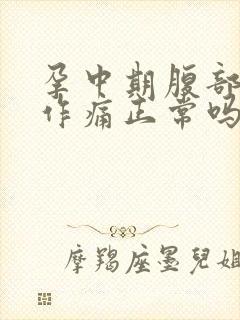 孕中期腹部
作痛正常吗
摩羯座墨兒姐